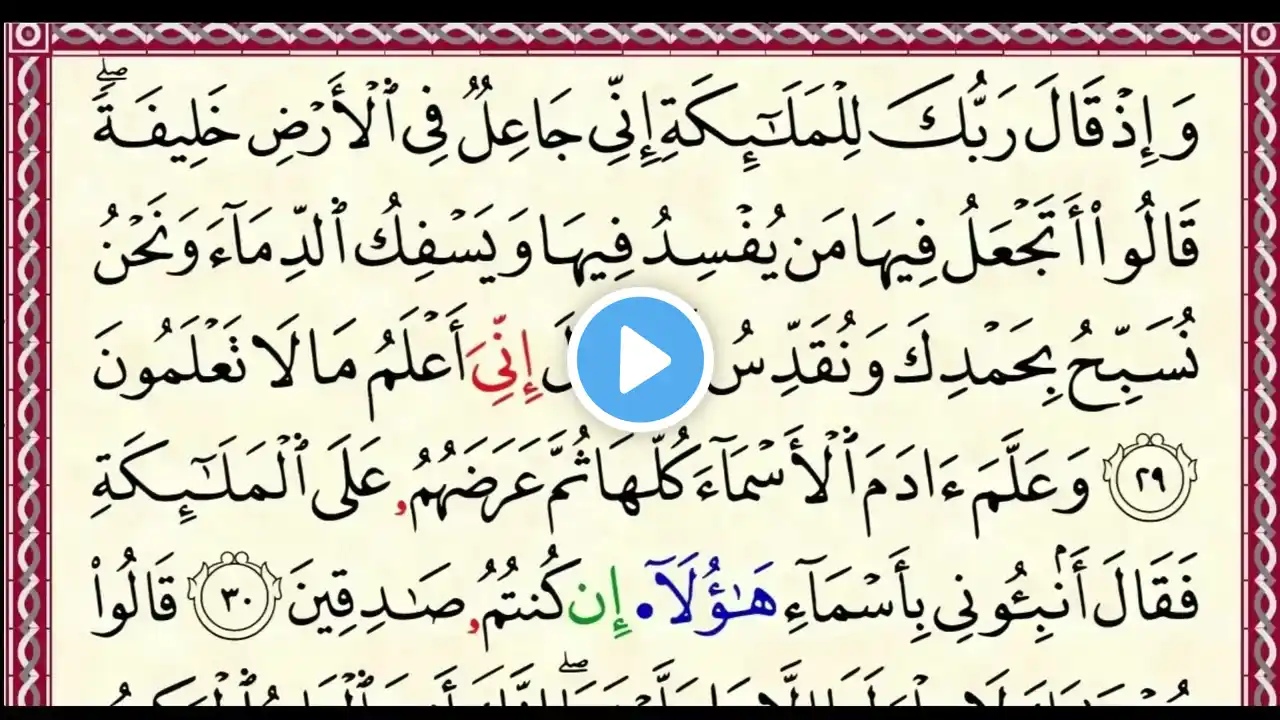 وَإِذْ قَالَ رَبُّكَ لِلْمَلَٰٓئِكَةِ إِنِّي جَاعِلٌ فِي ٱلْأَرْضِ خَلِيفَةًۖ
قَالُوا۟ أَتَجْعَلُ فِيهَا مَن يُفْسِدُ فِيهَا وَيَسْفِكُ ٱلدِّمَآءَ وَنَحْنُ
نُسَبِّحُ بِحَمْدِكَ وَنُقَدِّسُ إِنِّيَ أَعْلَمُ مَا لَا تَعْلَمُونَ
٢٩ وَعَلَّمَ ءَادَمَ ٱلْأَسْمَآءَ كُلَّهَا ثُمَّ عَرَضَهُمُۥ عَلَى ٱلْمَلَٰٓئِكَةِ
فَقَالَ أَنۢبِـُٔونِي بِأَسْمَآءِ هَٰٓؤُلَآ• إِن كُنتُمُۥ صَٰدِقِينَ ٣٠ قَالُوا۟